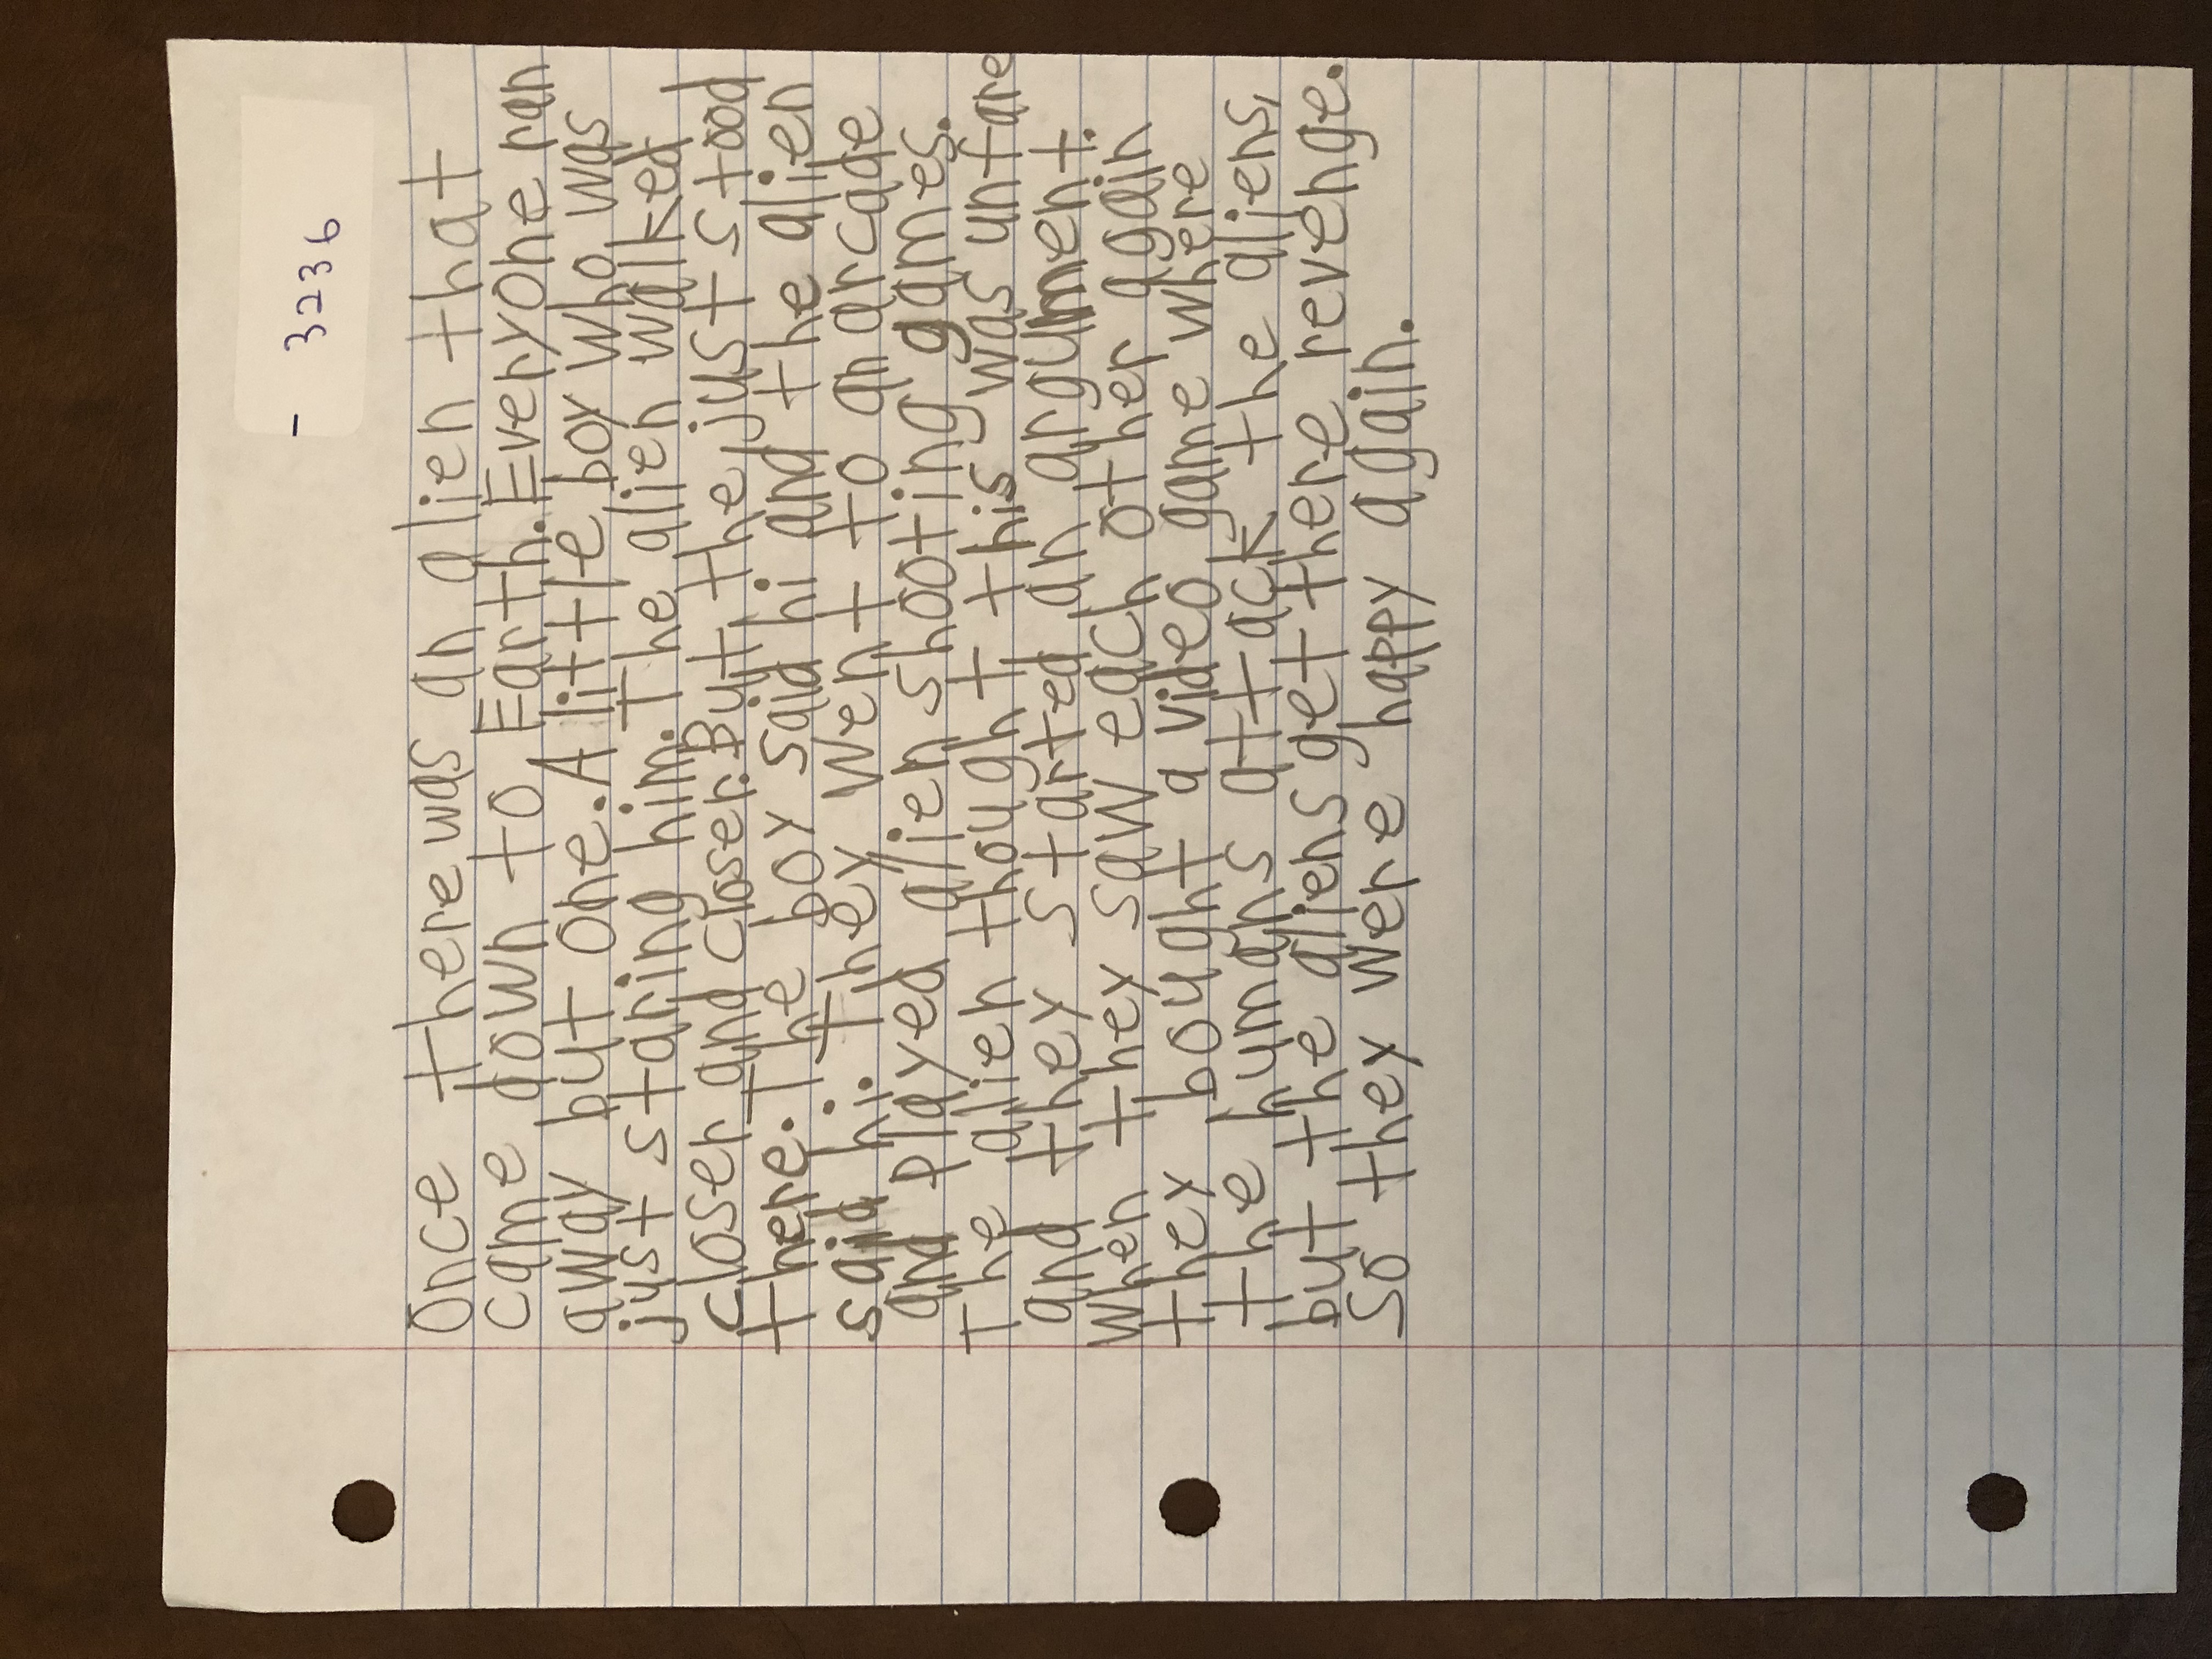 - 3236
Once there was an alien that
came down to Earth. Everyone ran
away but one. A little boy who was
just staring him. The alien walked
closer and closer. But the just stood
there. The boy said hi and the alien
said hi. They went to an arcade
and played alien shooting games.
The alien thought this was unfare
and they started an argument.
When they saw each other again
they bought a video game where
the humans attack the aliens,
but the aliens get there revenge.
So they were happy again.